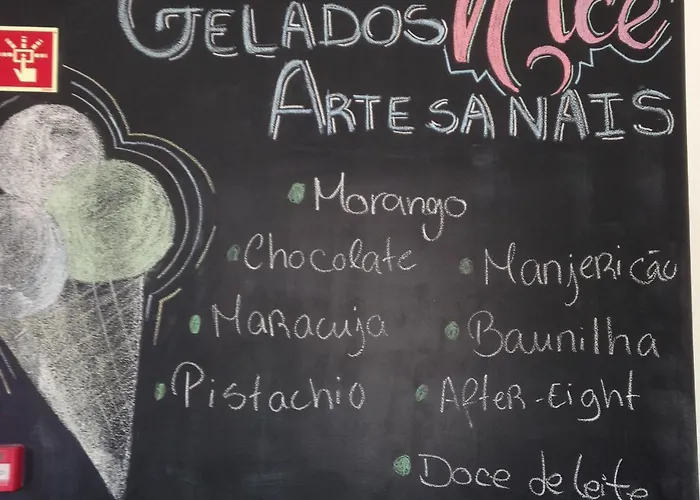 GELADOS Nice
ARTESANAIS
• Morango
• Chocolate
• Manjericão
• Maracuja
• Baunilha
• Pistachio
• After-Eight
• Doce de leite